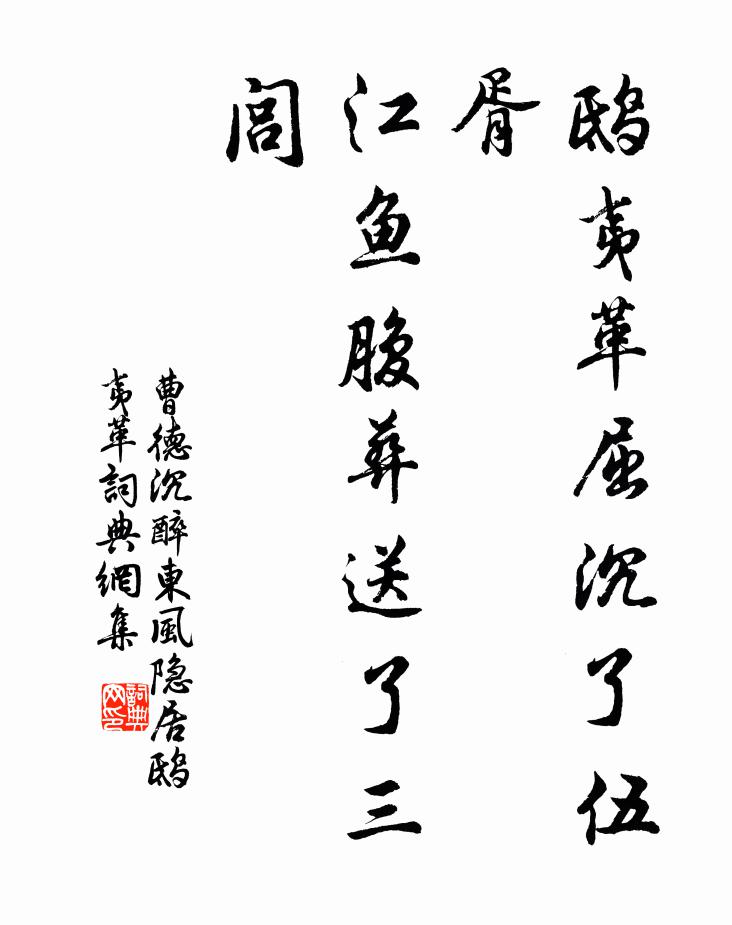 鸱夷革屈沉了伍
胥
江鱼腹葬送了三
闾
曹德沉醉東風隐居鸱
夷革詞典網集
詞典
网印